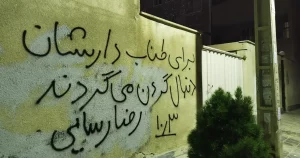 برای طناب دارشان
دنبال گردن می گردند
رضا رسایی
۱۰۳